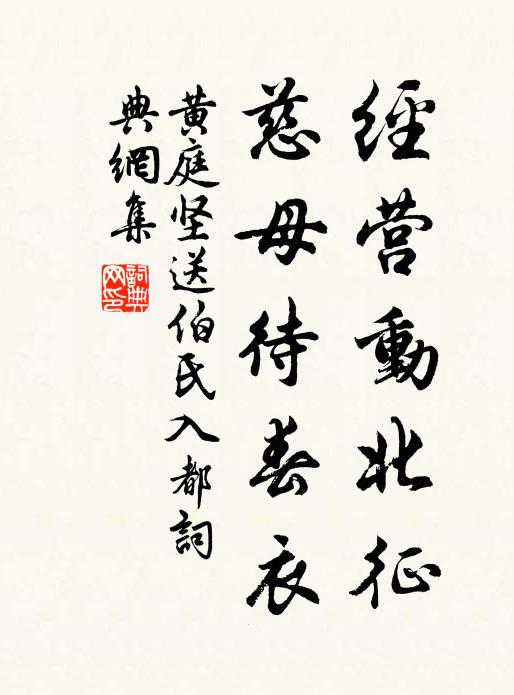 經营動北征
慈母待春衣
黄庭坚送伯氏入都詞
典網集
詞典
网印